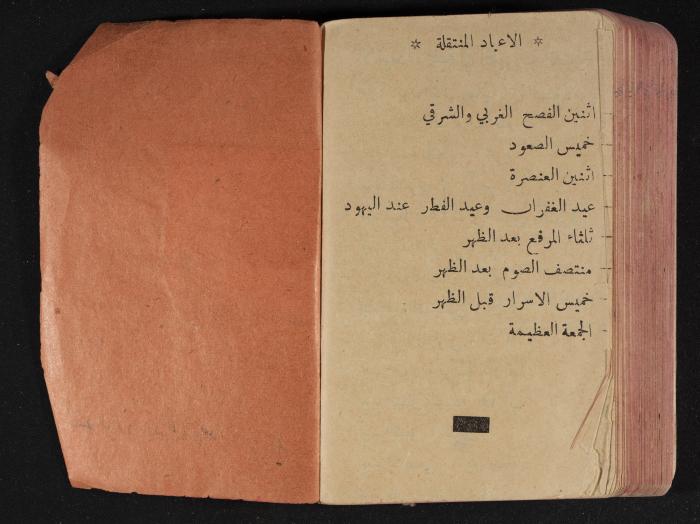 * الاعياد المنتقلة *
اثنين الفصح الغربي والشرقي -
خميس الصعود -
اثنين العنصرة -
عيد الغفران وعيد الفطر عند اليهود -
ثلثاء المرفع بعد الظهر -
منتصف الصوم بعد الظهر -
خميس الاسرار قبل الظهر -
الجمعة العظيمة -